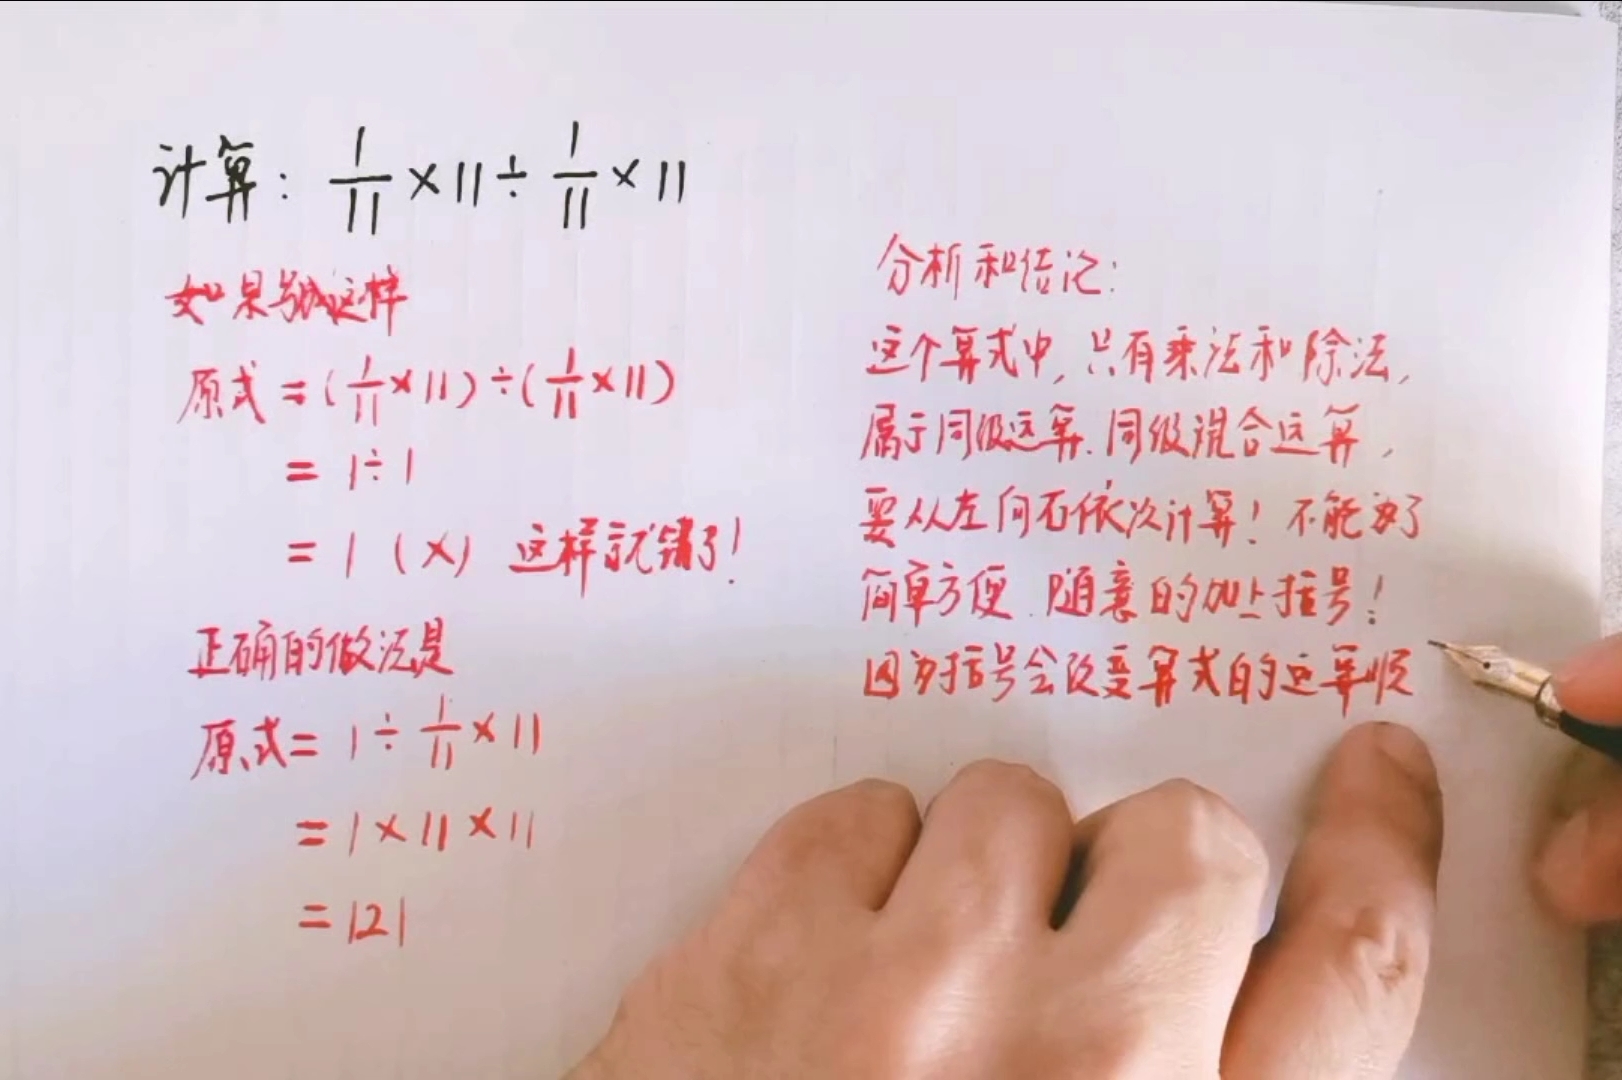 计算: 1/11 × 11 ÷ 1/11 × 11
如果做这样
原式 = (1/11 × 11) ÷ (1/11 × 11)
= 1 ÷ 1
= 1 (×) 这样就错了!
正确的做法是
原式 = 1 ÷ 1/11 × 11
= 1 × 11 × 11
= 121
分析和结论:
这个算式中, 只有乘法和除法,
属于同级运算. 同级混合运算,
要从左向右依次计算! 不能为了
简单方便. 随意的加上括号!
因为括号会改变算式的运算顺